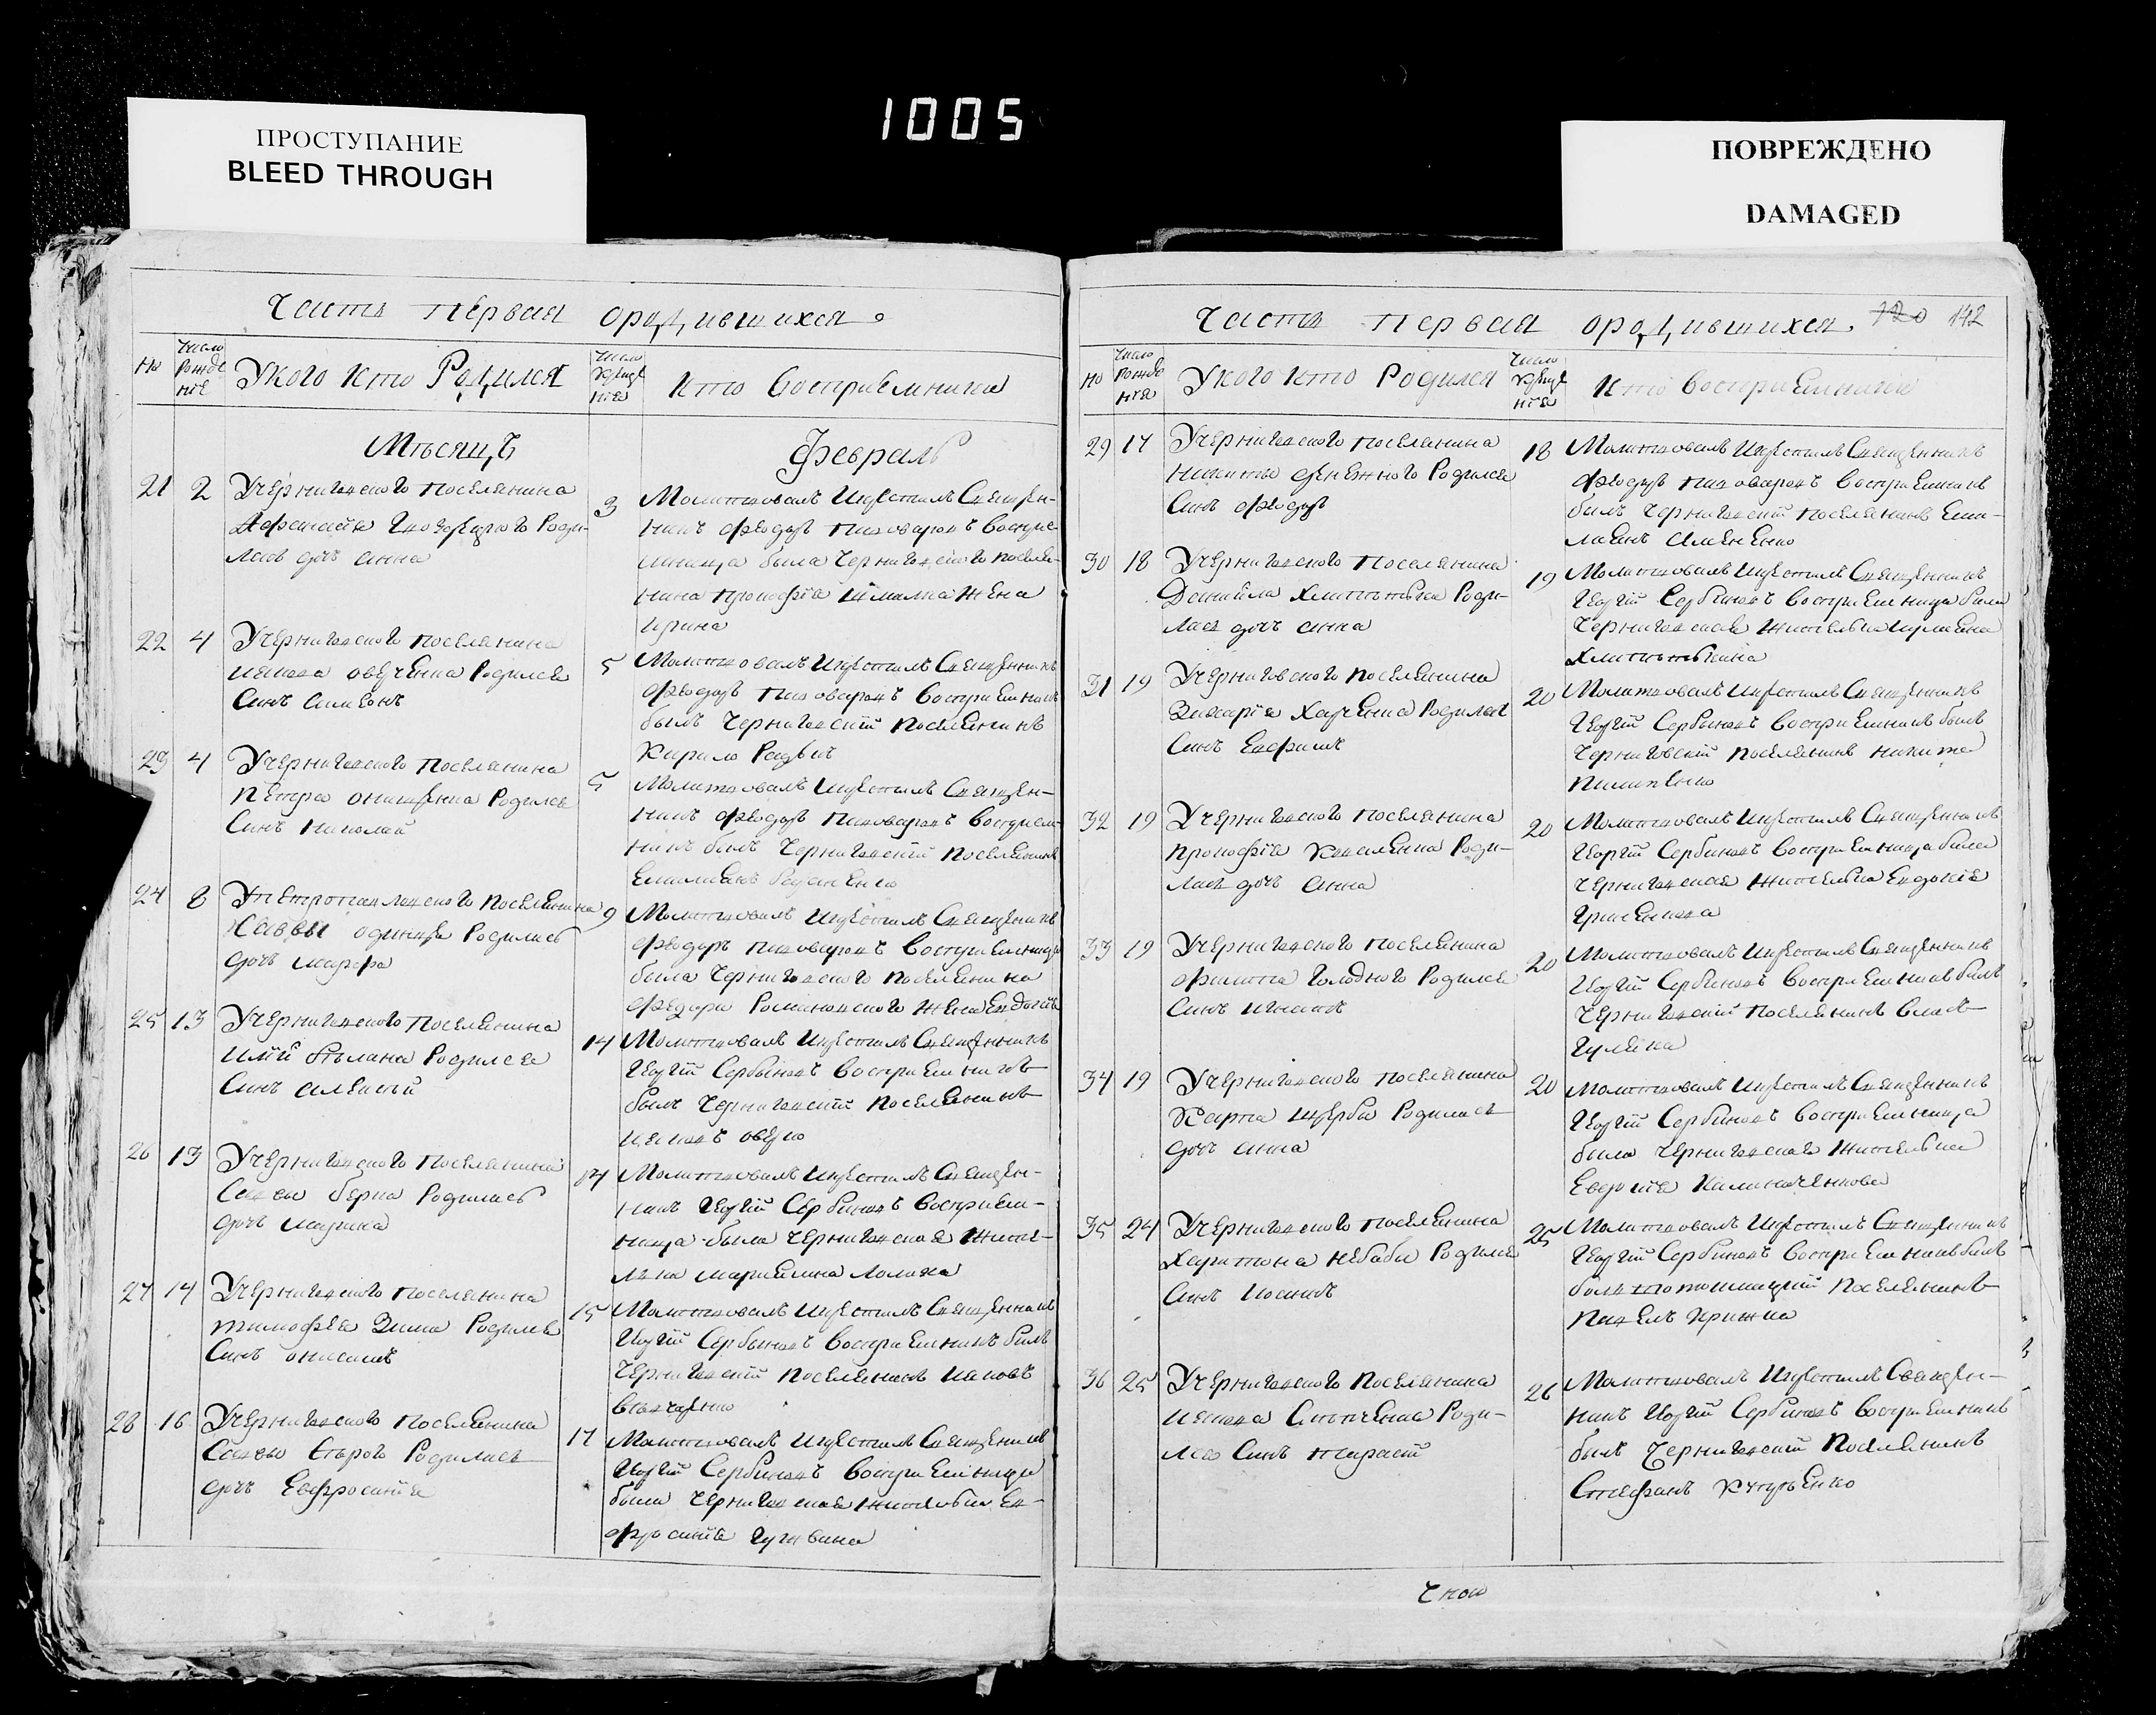 1005
ПРОСТУПАНИЕ
BLEED THROUGH
ПОВРЕЖДЕНО
DAMAGED
Часть первая ородившихся
Но
Число рожде нїе
У кого кто Родился
Число крще нїя
Кто восприемники
Месяцъ Февраль
21 2
Учерниговского поселянина
Роди-
лась дочь анна
3
Молитвовалъ икрестилъ Священ-
никъ феодоръ пивоваровъ восприе-
мница была Черниговского поселя-
нина прокофїя жена
ирина
22 4
Учерниговского поселянина
иякова овчаренка Родился
Синъ Симеонъ
5
Молитвовалъ икрестилъ Священникъ
феодоръ пивоваровъ восприемникъ
былъ Черниговский поселянинъ
Кирило
23 4
Учерниговского поселянина
петра онищенка Родился
Синъ николай
5
Молитвовалъ икрестилъ Священ-
никъ феодоръ пивоваровъ восприем-
никъ былъ Черниговский поселянинъ
Емилиянъ
24 8
Упетропавловского поселянина
Саввы одинца Родилась
дочь марфа
9
Молитвовалъ икрестилъ Священникъ
феодоръ пивоваровъ восприемница
была Черниговского поселянина
федора Романовского жена Евдокїя
25 13
Учерниговского поселянина
илїи билана Родился
Синъ алексїй
14
Молитвовалъ икрестилъ Священникъ
Георгїй Сербиновъ восприемникъ
былъ Черниговский поселянинъ
26 13
Учерниговского поселянина
Саввы Родилась
дочь марина
14
Молитвовалъ икрестилъ Священ-
никъ Георгїй Сербиновъ восприем-
ница была Черниговская жите-
лька
27 14
Учерниговского поселянина
тимофея Зима Родился
Синъ онисимъ
15
Молитвовалъ икрестилъ Священникъ
Георгїй Сербиновъ восприемникъ былъ
Черниговский поселянинъ иаковъ
28 16
Учерниговского поселянина
Саввы Родилась
дочь Евфросинїя
17
Молитвовалъ икрестилъ Священникъ
Георгїй Сербиновъ восприемница
была Черниговская жителька Ев-
фросинїя гужвина
Часть первая ородившихся. 120 142
Но
Число рожде нїя
У кого кто Родился
Число крще нїя
Кто восприемники
29 17
Учерниговского поселянина
никиты денежного Родился
Синъ феодоръ
18
Молитвовалъ икрестилъ Священникъ
феодоръ пивоваровъ восприемникъ
былъ Черниговский поселянинъ Еми-
лиянъ
30 18
Учерниговского поселянина
Данїила Роди-
лась дочь анна
19
Молитвовалъ икрестилъ Священникъ
Георгїй Сербиновъ восприемница была
Черниговская жителька
31 19
Учерниговского поселянина
Захарїя Харченка Родился
Синъ Ефримъ
20
Молитвовалъ икрестилъ Священникъ
Георгїй Сербиновъ восприемникъ былъ
Черниговский поселянинъ никита
пилипенко
32 19
Учерниговского поселянина
прокофїя Роди-
лась дочь анна
20
Молитвовалъ икрестилъ Священникъ
Георгїй Сербиновъ восприемница была
Черниговская жителька Евдокїя
33 19
Учерниговского поселянина
филипа голодного Родился
Синъ игнатъ
20
Молитвовалъ икрестилъ Священникъ
Георгїй Сербиновъ восприемникъ былъ
Черниговский поселянинъ власъ
34 19
Учерниговского поселянина
Карпа щерби Родилась
дочь анна
20
Молитвовалъ икрестилъ Священникъ
Георгїй Сербиновъ восприемница
была Черниговская жителька
35 24
Учерниговского поселянина
Харитона небаби Родился
Синъ
25
Молитвовалъ икрестилъ Священникъ
Георгїй Сербиновъ восприемникъ былъ
поселянинъ
павелъ
36 25
Учерниговского поселянина
иякова Роди-
лся Синъ тарасїй
26
Молитвовалъ икрестилъ Священ-
никъ Георгїй Сербиновъ восприемникъ
былъ Черниговский поселянинъ
Стефанъ